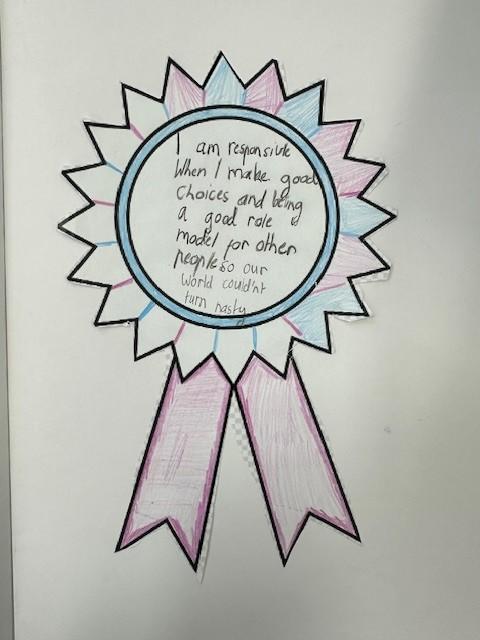 I am responsivle
When I make good
Choices and being
a good role
model for other
people so our
world could'nt
turn nasty